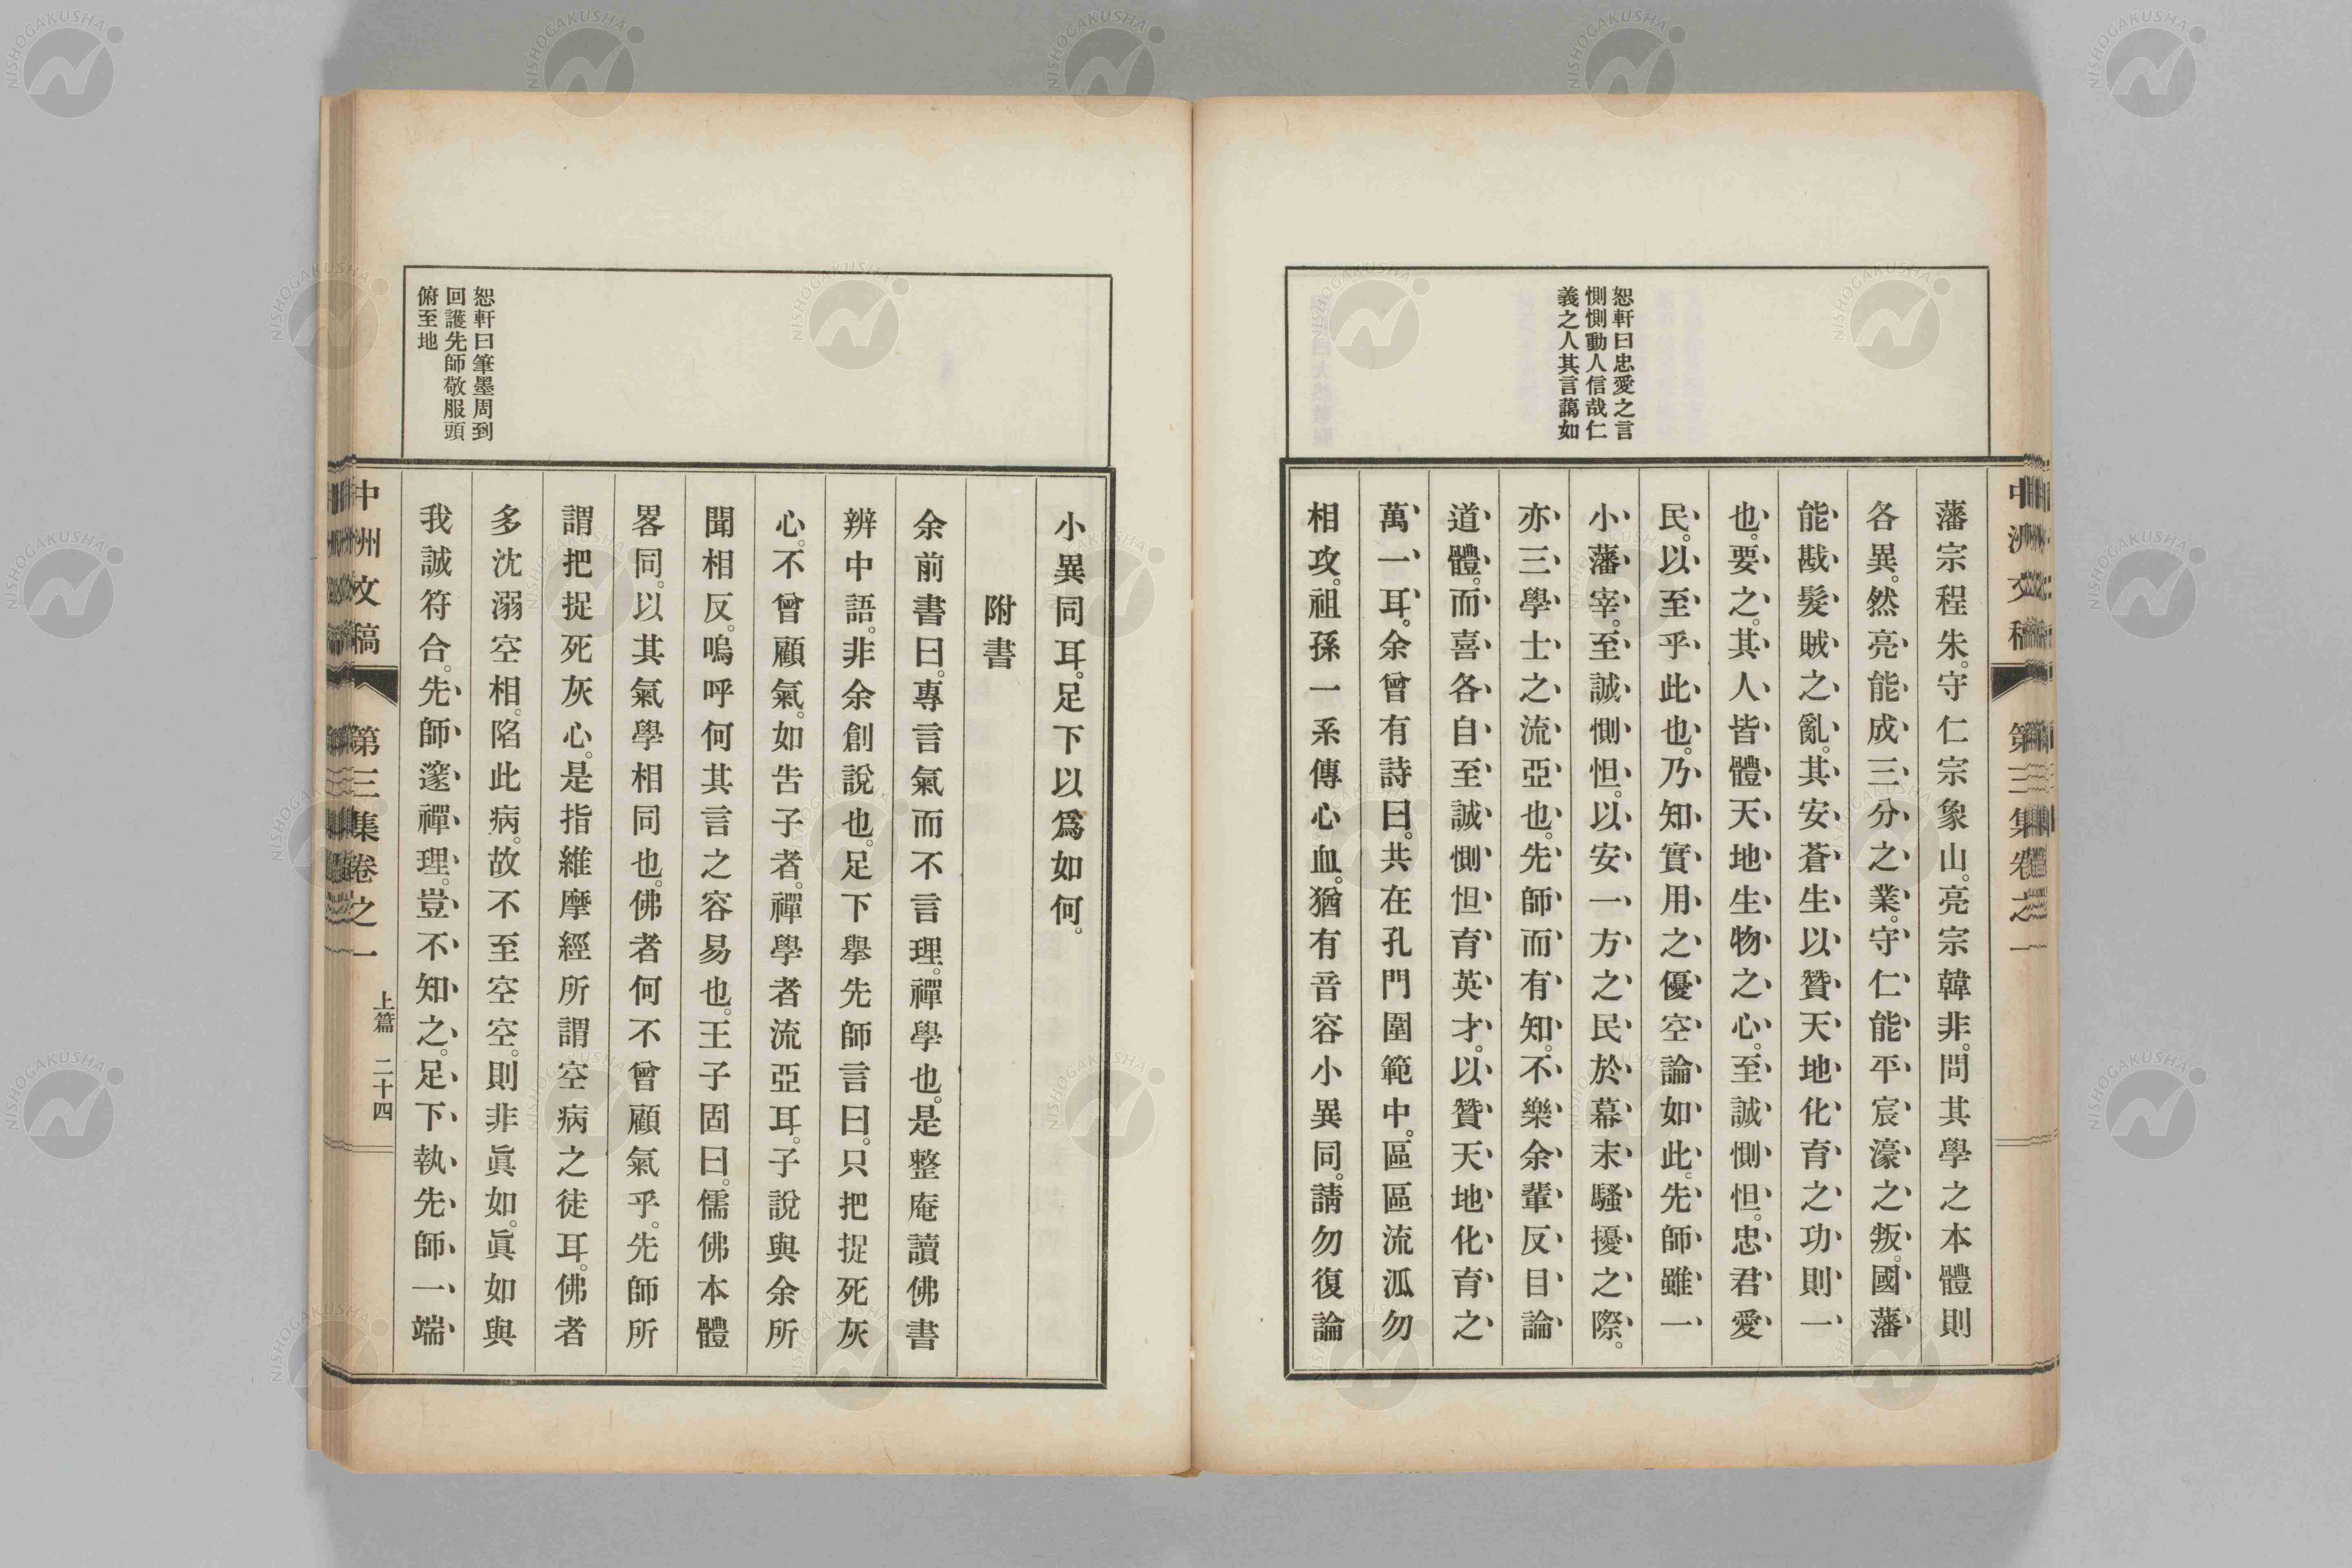 恕軒曰忠愛之言
惻惻動人信哉仁
義之人其言藹如
藩宗程朱。守仁宗象山。亮宗韓非。問其學之本體則
各異。然亮能成三分之業。守仁能平宸濠之叛。國藩
能戡髮賊之亂。其安蒼生以贊天地化育之功則一
也。要之。其人皆體天地生物之心。至誠惻怛。忠君愛
民。以至乎此也。乃知實用之優空論如此。先師雖一
小藩宰。至誠惻怛。以安一方之民於幕末騷擾之際。
亦三學士之流亞也。先師而有知。不樂余輩反目論
道體。而喜各自至誠惻怛育英才。以贊天地化育之
萬一耳。余曾有詩曰。共在孔門圍範中。區區流泒勿
相攻。祖孫一系傳心血。猶有音容小異同。請勿復論
小異同耳。足下以爲如何。
附書
余前書曰。專言氣而不言理。禪學也。是整庵讀佛書
辨中語。非余創說也。足下擧先師言曰。只把捉死灰
心。不曾顧氣。如告子者。禪學者流亞耳。子說與余所
聞相反。嗚呼何其言之容易也。王子固曰。儒佛本體
畧同。以其氣學相同也。佛者何不曾顧氣乎。先師所
謂把捉死灰心。是指維摩經所謂空病之徒耳。佛者
多沈溺空相。陷此病。故不至空空。則非眞如。眞如與
我誠符合。先師邃禪理。豈不知之。足下執先師一端
恕軒曰筆墨周到
回護先師敬服頭
俯至地
中洲文稿
第三集卷之一
上篇 二十四